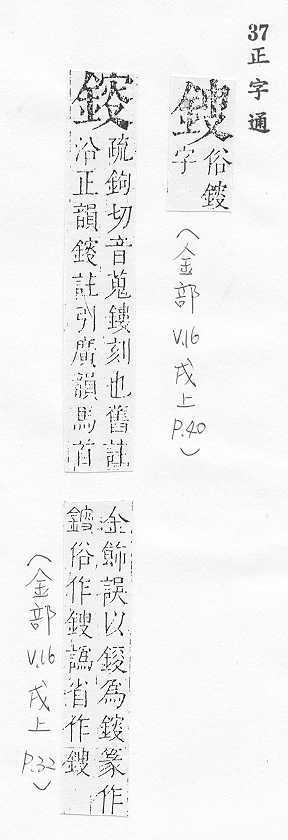 37正字通
鎪
俗鎪
字
(金部 V.16 戌上 P.40)
疏鉤切音蒐鏤刻也舊註
沿正韻鋄註引廣韻馬首
金飾誤以鋄為鎪篆作
俗作鎪譌省作
(金部 V.16 戌上 P.32)